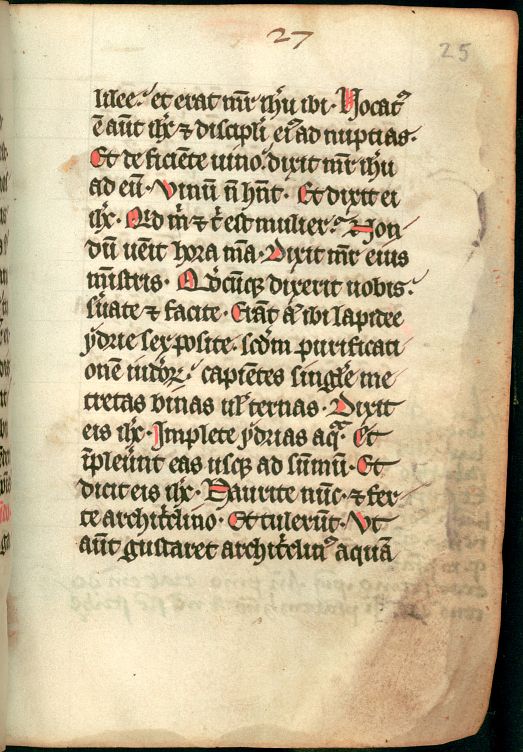 27
25
lilee. et erat mr̄ ihū ibi. Vocatꝰ
ē aūt ihc̄ ⁊ discipli̅ eiꝰ ad nuptias.
Et deficiēte uino. dixit mr̄ ihū
ad eū. Vinū n̄ hn̄t. Et dixit ei
ihc̄. Qid m̄ ⁊ t̄ est mulier. Non
dū uēit hora mā. Dixit mr̄ eius
mīstris. Qd̄cūqꝫ dixerit uobis.
s̄uate ⁊ facite. Erāt aͥ ibi lapidee
ẏdrie sex posite. scd̄m purificati
onē iudōꝝ. capiētes singl̄e me
tretas binas ul̓ ternas. Dixit
eis ihc̄. Implete ẏdrias aqᷓ. Et
īpleūnt eas usqꝫ ad sūmū. Et
dicit eis ihc̄. Haurite nūc. ⁊ fer
te archit̄clino. Et tulerūt. Vt
aūt gustaret archit̄clinꝰ aquā